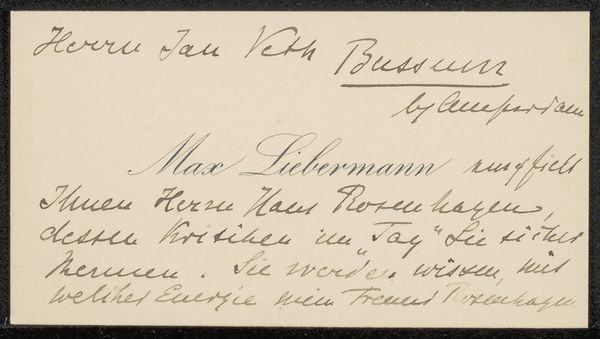 Herrn Jan Veth
Bussum
by Amsterdam
Max Liebermann empfielt
Ihnen Herrn Hans Rosenhagen,
dessen Kritiken im „Tag“ Sie sicher
kennen. Sie werden wissen, mit
welcher Energie mein Freund Rosenhagen